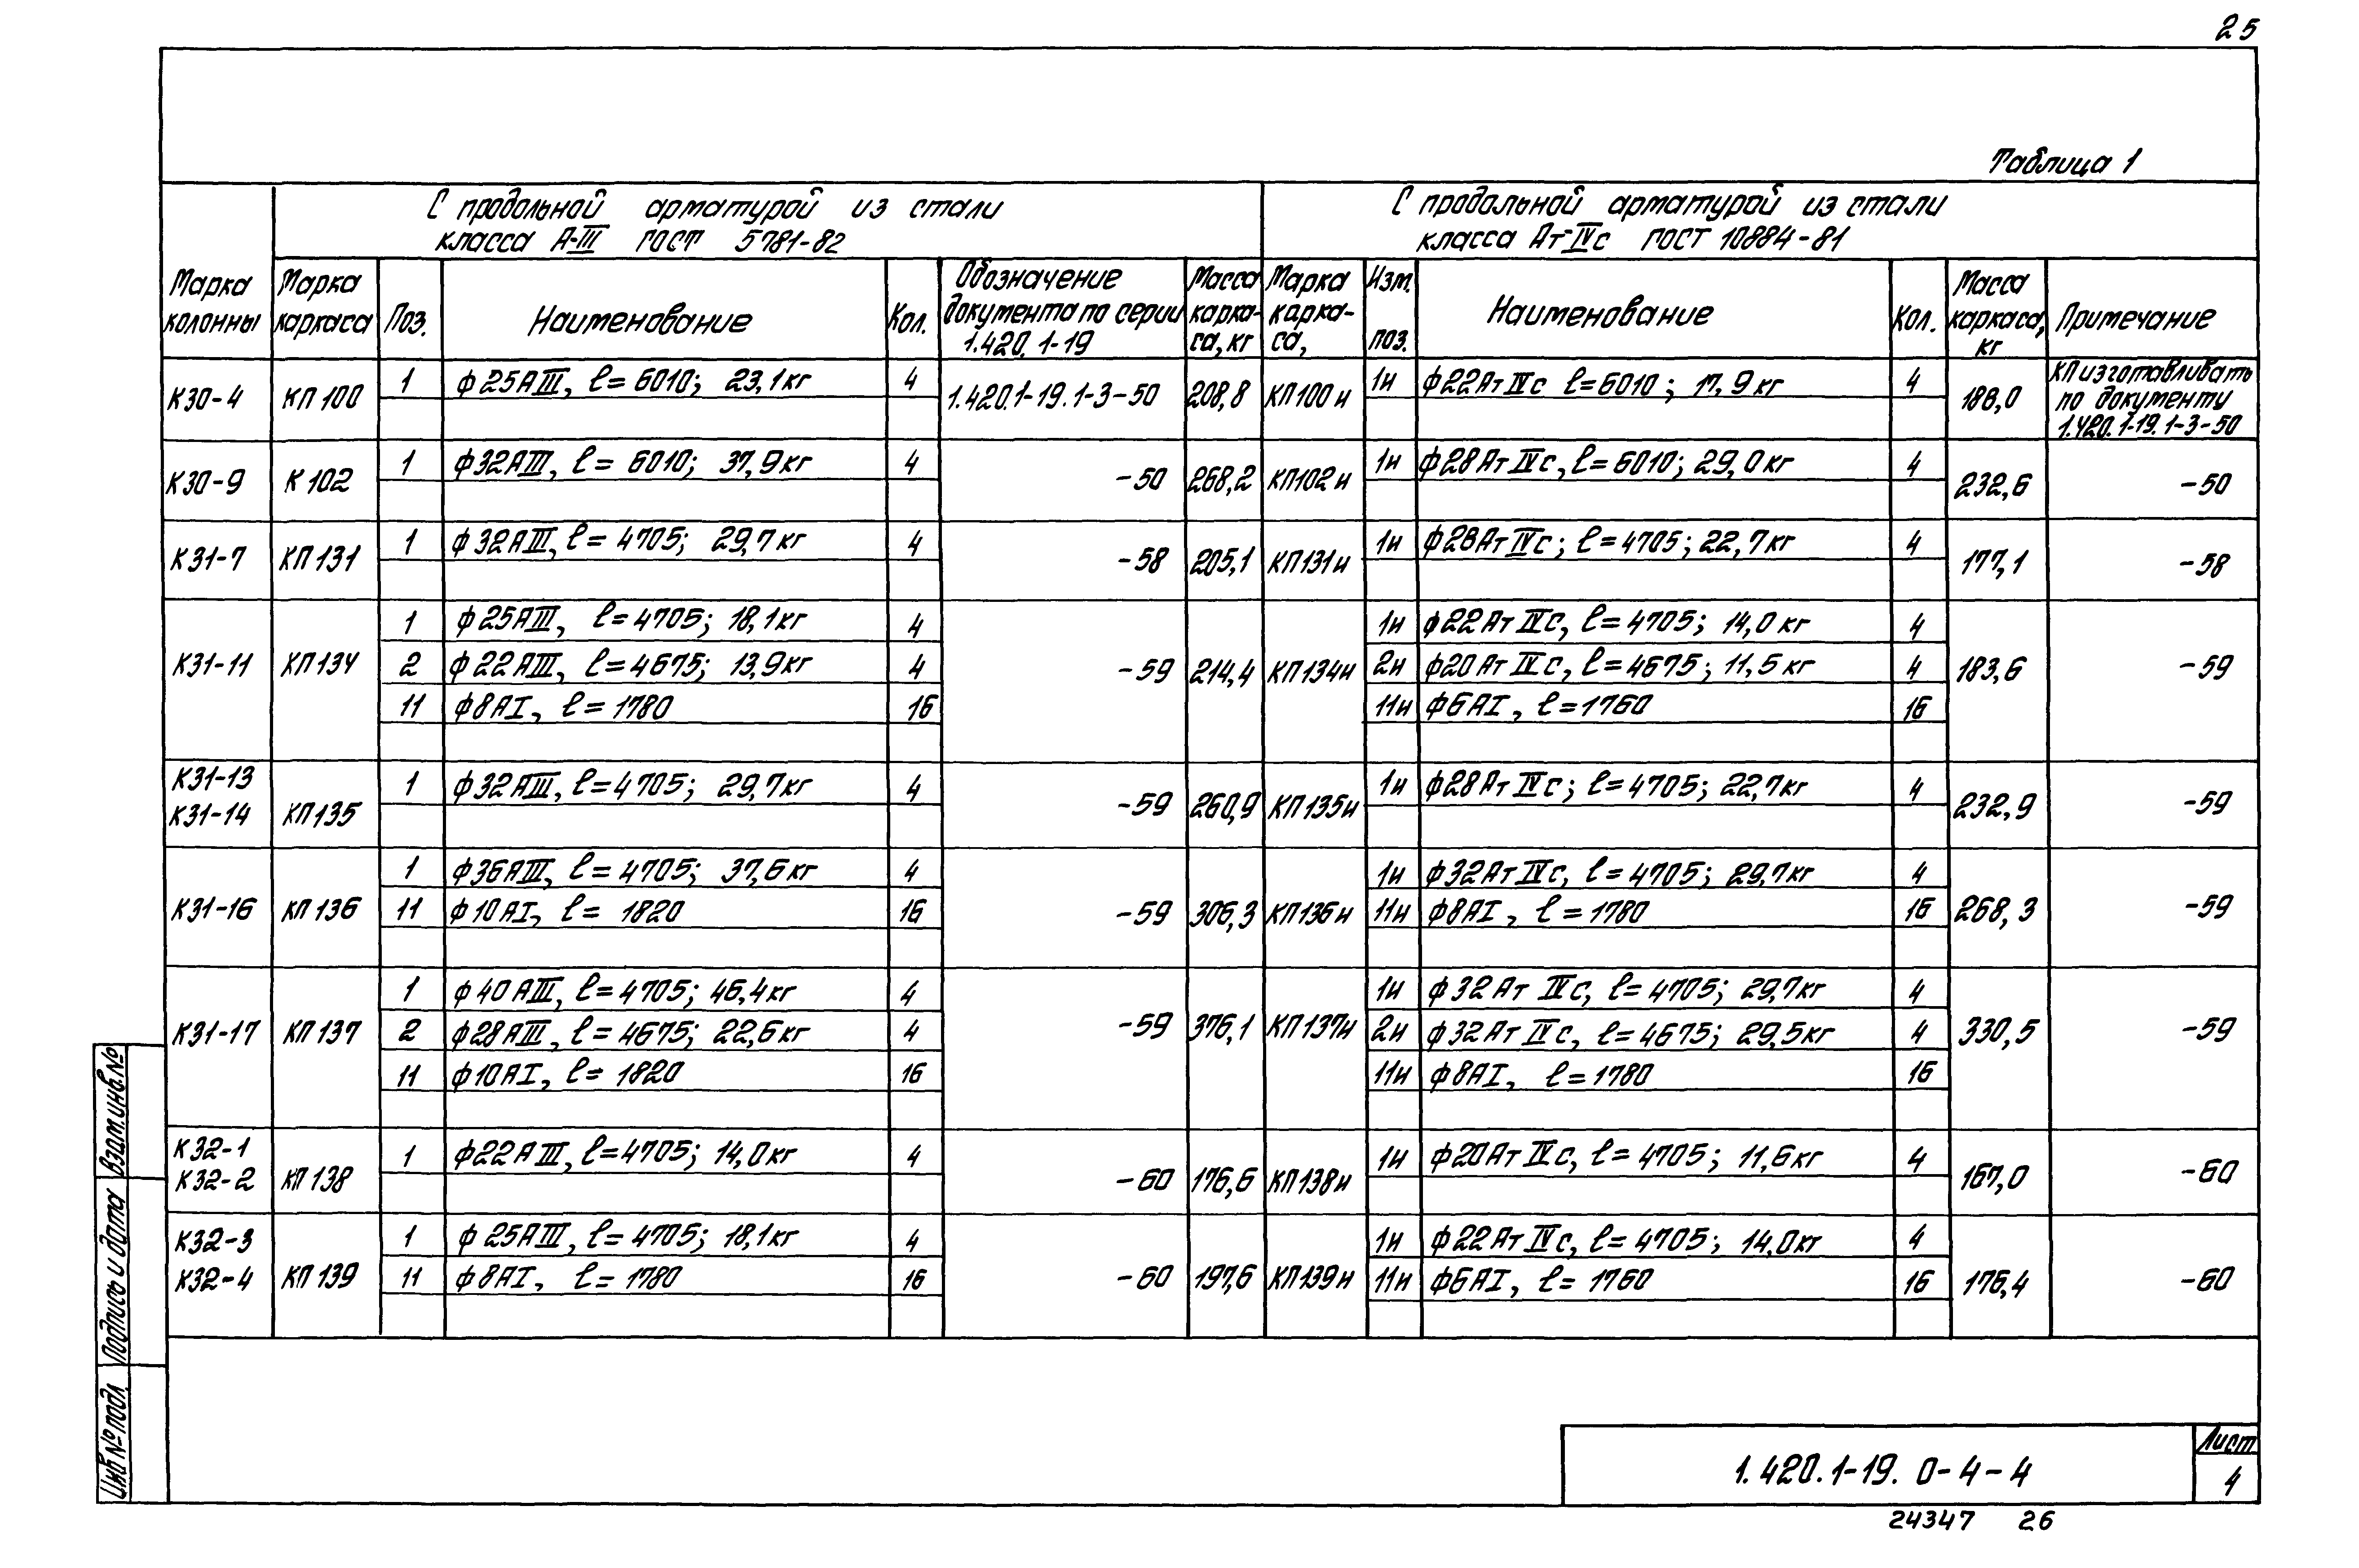 25
Таблица 1
С продольной арматурой из стали
класса А-III ГОСТ 5781-82
С продольной арматурой из стали
класса Ат-IVс ГОСТ 10884-81
Марка колонны
Марка каркаса
Поз.
Наименование
Кол.
Обозначение документа по серии 1.420.1-19
Масса карка-са, кг
Марка карка-са,
Изм. поз.
Наименование
Кол.
Масса каркаса, кг
Примечание
К30-4 КП100 1 ф25АIII, ℓ=6010; 23,1кг 4 1.420.1-19.1-3-50 208,8 КП100и 1и ф22АтIVс ℓ=6010; 17,9кг 4 188,0 КП изготавливать
по документу
1.420.1-19.1-3-50
К30-9 К102 1 ф32АIII, ℓ= 6010; 37,9кг 4 -50 268,2 КП102и 1и ф28АтIVс, ℓ=6010; 29,0кг 4 232,6 -50
К31-7 КП131 1 ф32АIII, ℓ= 4705; 29,7кг 4 -58 205,1 КП131и 1и ф28АтIVс; ℓ=4705; 22,7кг 4 177,1 -58
К31-11 КП134 1 ф25АIII, ℓ=4705; 18,1кг 4 -59 214,4 КП134и 1и ф22АтIVс, ℓ=4705; 14,0кг 4 183,6 -59
2 ф22АIII, ℓ=4675; 13,9кг 4 2и ф20АтIVс, ℓ=4675; 11,5кг 4
11 ф8АI, ℓ=1780 16 11и ф6АI, ℓ=1760 16
К31-13
К31-14 КП135 1 ф32АIII, ℓ=4705; 29,7кг 4 -59 260,9 КП135и 1и ф28АтIVс; ℓ=4705; 22,7кг 4 232,9 -59
К31-16 КП136 1 ф36АIII, ℓ=4705; 37,6кг 4 -59 306,3 КП136и 1и ф32АтIVс, ℓ=4705; 29,7кг 4 268,3 -59
11 ф10АI, ℓ= 1820 16 11и ф8АI, ℓ=1780 16
К31-17 КП137 1 ф40АIII, ℓ=4705; 46,4кг 4 -59 376,1 КП137и 1и ф32АтIVс, ℓ=4705; 29,7кг 4 330,5 -59
2 ф28АIII, ℓ=4675; 22,6кг 4 2и ф32АтIVс, ℓ=4675; 29,5кг 4
11 ф10АI, ℓ=1820 16 11и ф8АI, ℓ=1780 16
К32-1
К32-2 КП138 1 ф22АIII, ℓ=4705; 14,0кг 4 -60 176,6 КП138и 1и ф20АтIVс, ℓ=4705; 11,6кг 4 167,0 -60
К32-3
К32-4 КП139 1 ф25АIII, ℓ=4705; 18,1кг 4 -60 197,6 КП139и 1и ф22АтIVс, ℓ=4705; 14,0кг 4 176,4 -60
11 ф8АI, ℓ=1780 16 11и ф6АI, ℓ=1760 16
Взам.инв.№
Подпись и дата
Инв№подл.
1.420.1-19. 0-4-4
Лист
4
24347 26